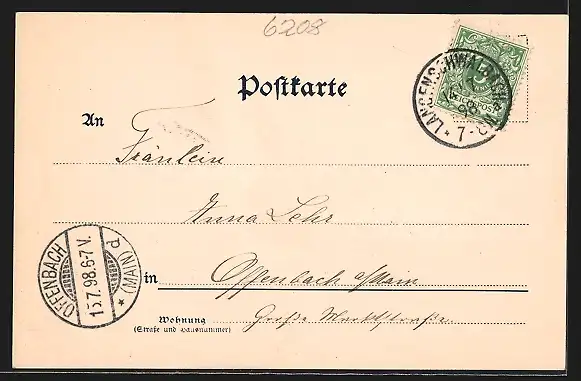 6208
Postkarte
LANGENSCHWALBACH
7-8
An
Fräulein
Anna Lehr
OFFENBACH
15.7.98.6-7V.
(MAIN) d
in Offenbach a/Main
Wohnung Große Marktstraße
(Straße und Hausnummer)